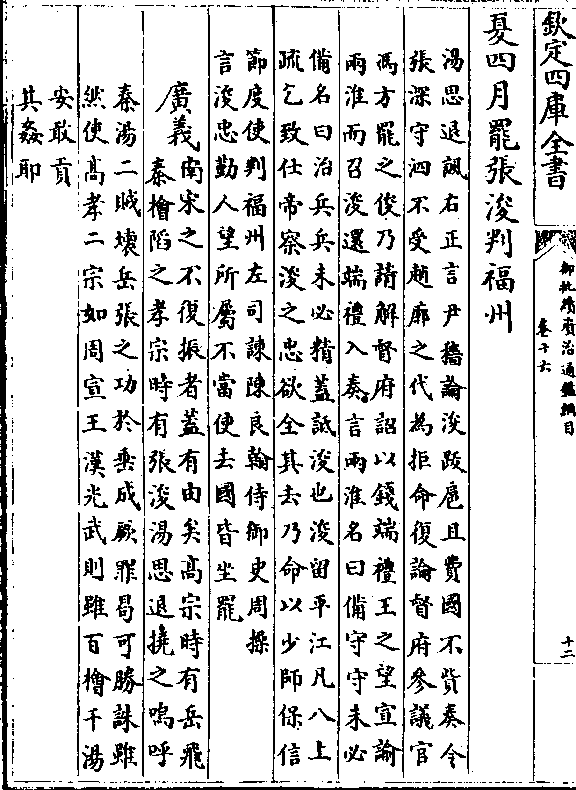 欽定四庫全書
御批續資治通鑑綱目
卷十六
十二
夏四月罷張浚判福州
湯思退諷右正言尹穡論浚跋扈且費國不貲奏令
張深守泗不受趙廓之代為拒命復論督府參議官
馮方罷之俊乃請解督府詔以錢端禮王之望宣諭
兩淮而召浚還端禮入奏言兩淮名曰備守守未必
備名曰治兵兵未必精蓋詆浚也浚留平江凡八上
疏乞致仕帝察浚之忠欲全其去乃命以少師保信
節度使判福州左司諫陳良翰侍御史周操
言浚忠勤人望所屬不當使去國皆坐罷
廣義南宋之不復振者蓋有由矣高宗時有岳飛
秦檜陷之孝宗時有張浚湯思退撓之嗚呼
秦湯二賊壞岳張之功於垂成厥罪曷可勝誅雖
然使高孝二宗如周宣王漢光武則雖百檜千湯
安敢貢
其姦耶